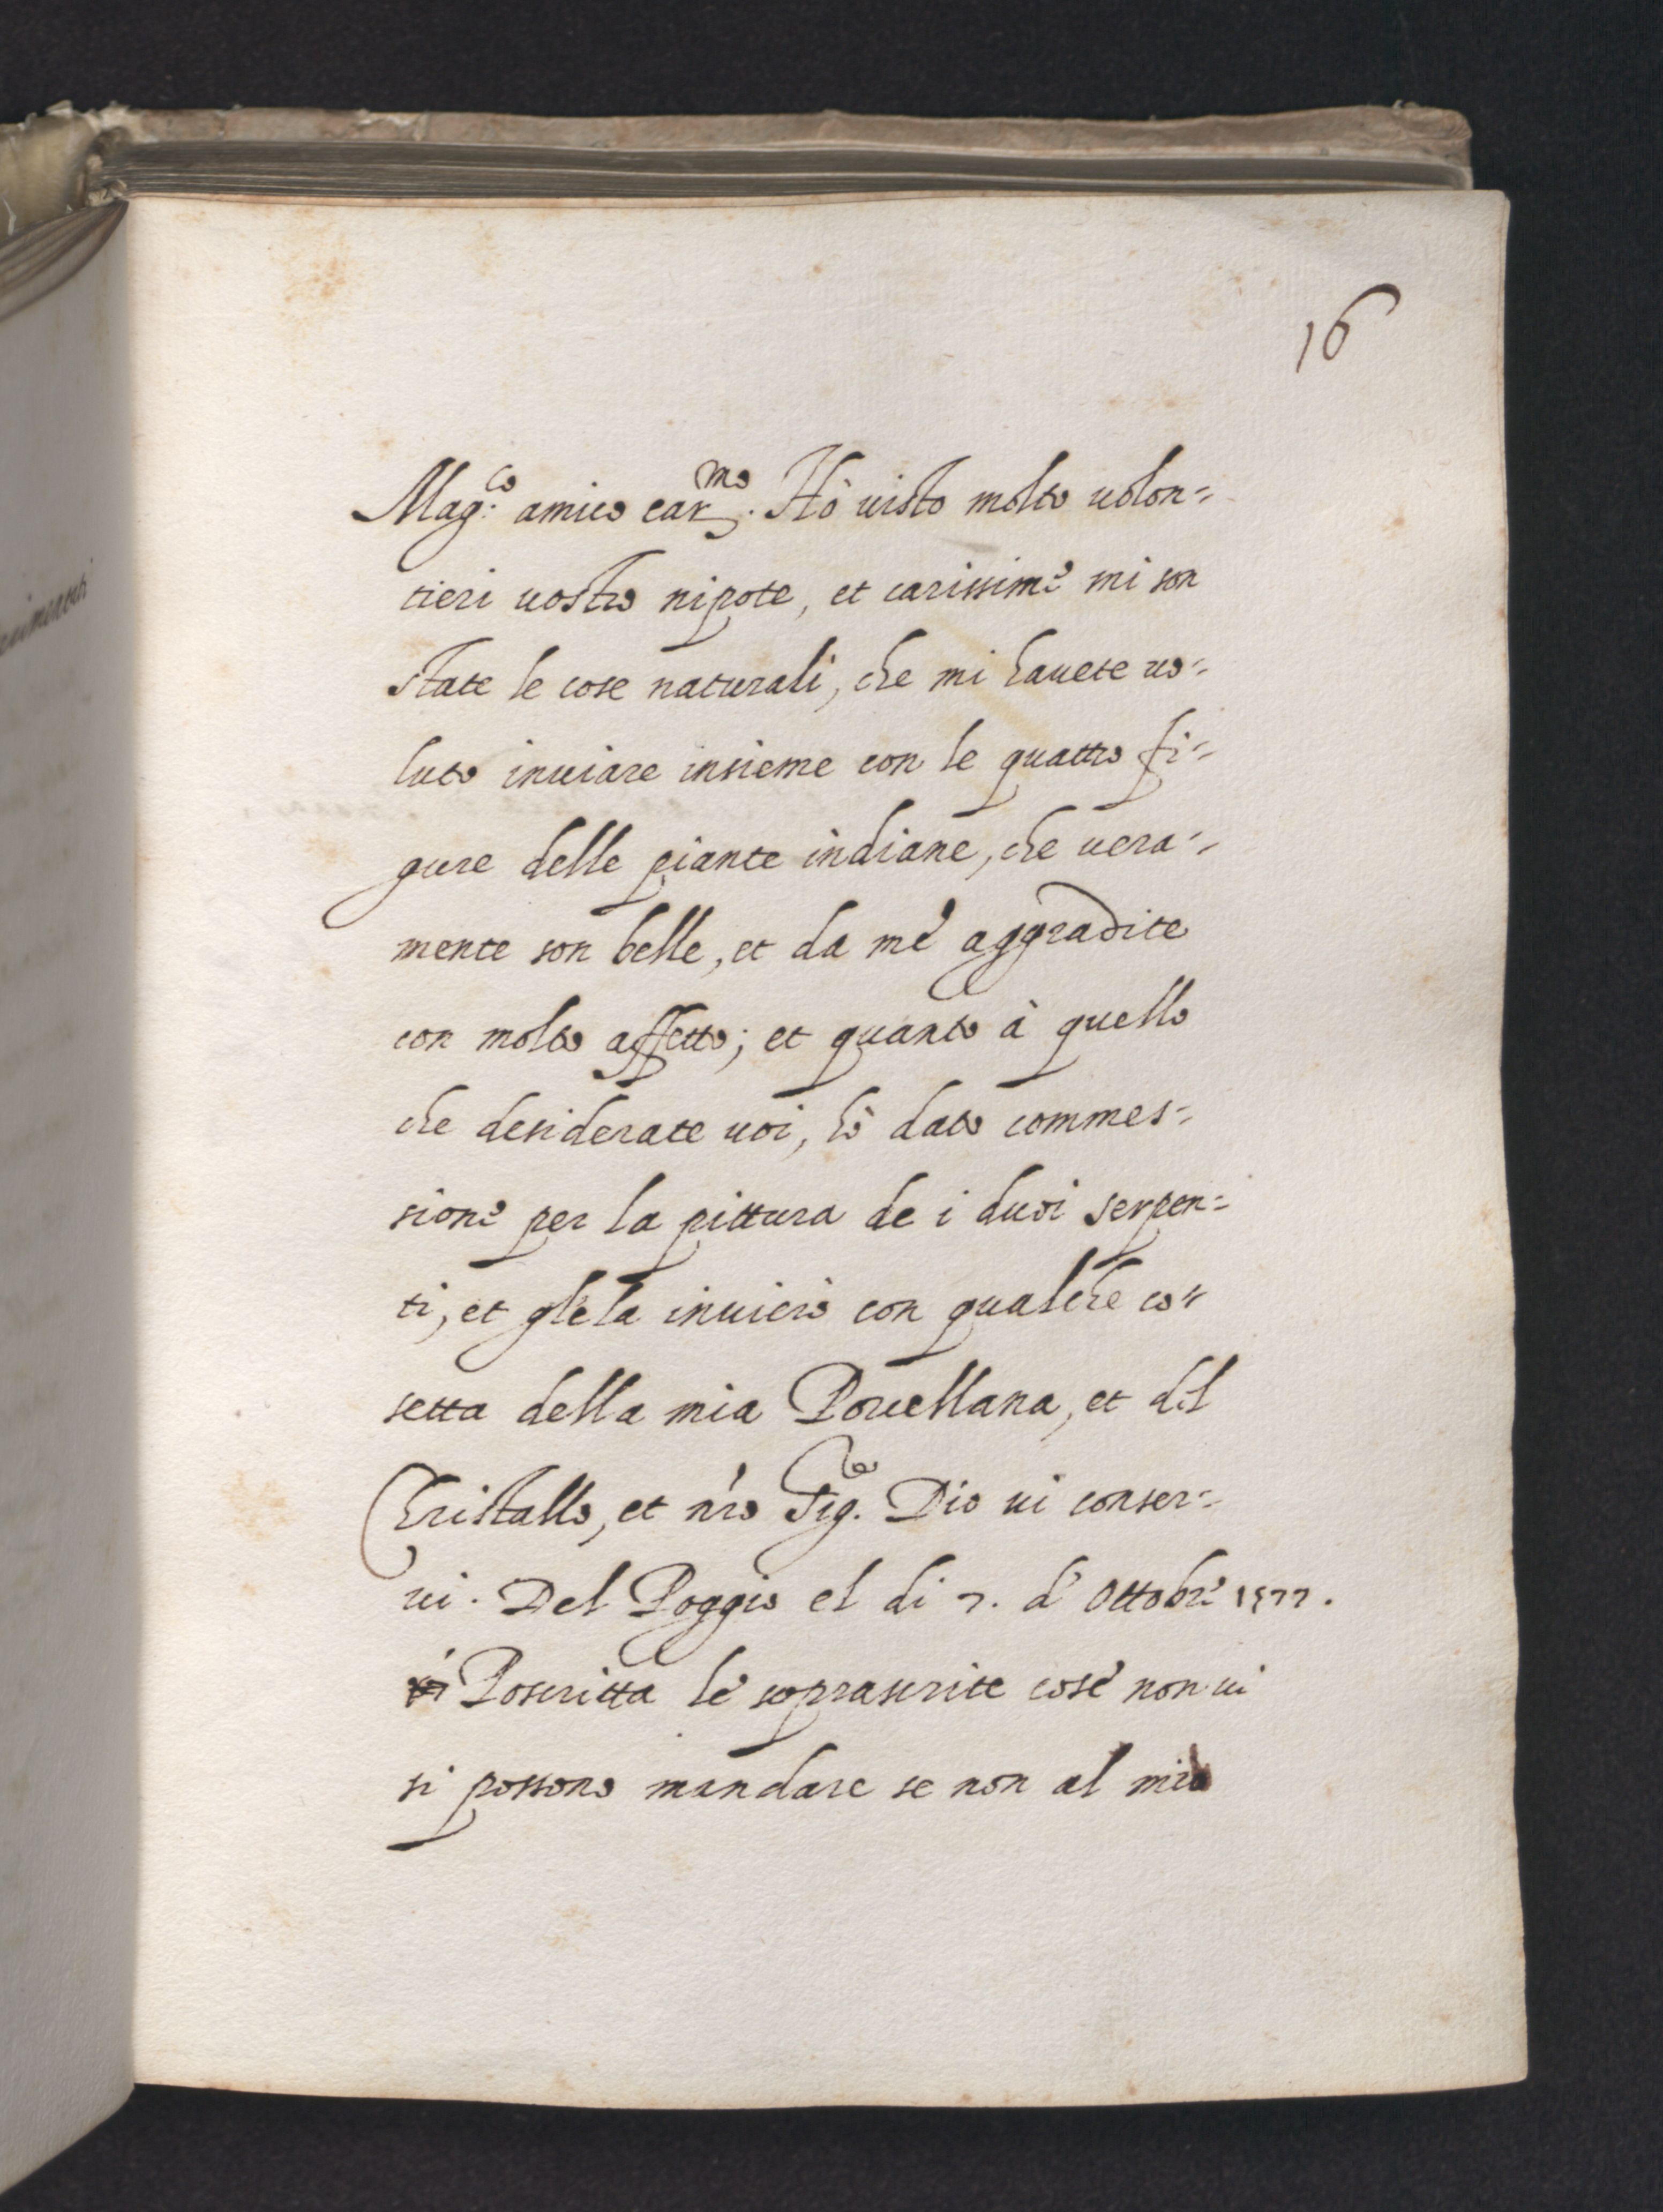 16
Mag:co amico carmo. Hò uisto molto uolon=
tieri uostro nipote, et carissime mi son
state le cose naturali, che mi hauete uo=
luto inuiare insieme con le quattro fi=
gure delle piante indiane, che uera=
mente son belle, et da me aggradite
con molto affetto; et quanto à quello
che desiderate uoi, hò dato commes=
sione per la pittura de i duoi serpen=
ti, et gle la inuierò con qualche co=
setta della mia Porcellana, et del
Christallo, et nro Sig.re Dio ui conser=
ui. Del Poggio el di 7. d' Ottobre 1577.
Poscritta le soprascrite cose non ui
si possono mandare se non al mio